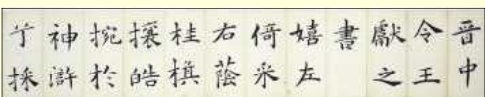 晋中
令王
獻之
書
嬉左
倚采
右蔭
桂旗
攘皓
捥於
神滸
兮採